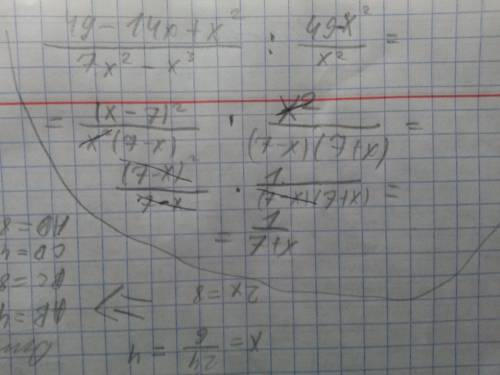 (49 - 14x + x²)/(7x² - x³) : (49-x²)/x² =
= (x - 7)²/(x(7-x)) · x²/((7-x)(7+x)) =
(7-x)²/(7-x) · 1/((7-x)(7+x)) =
= 1/(7+x)
x = 24/6 = 4
2x = 8